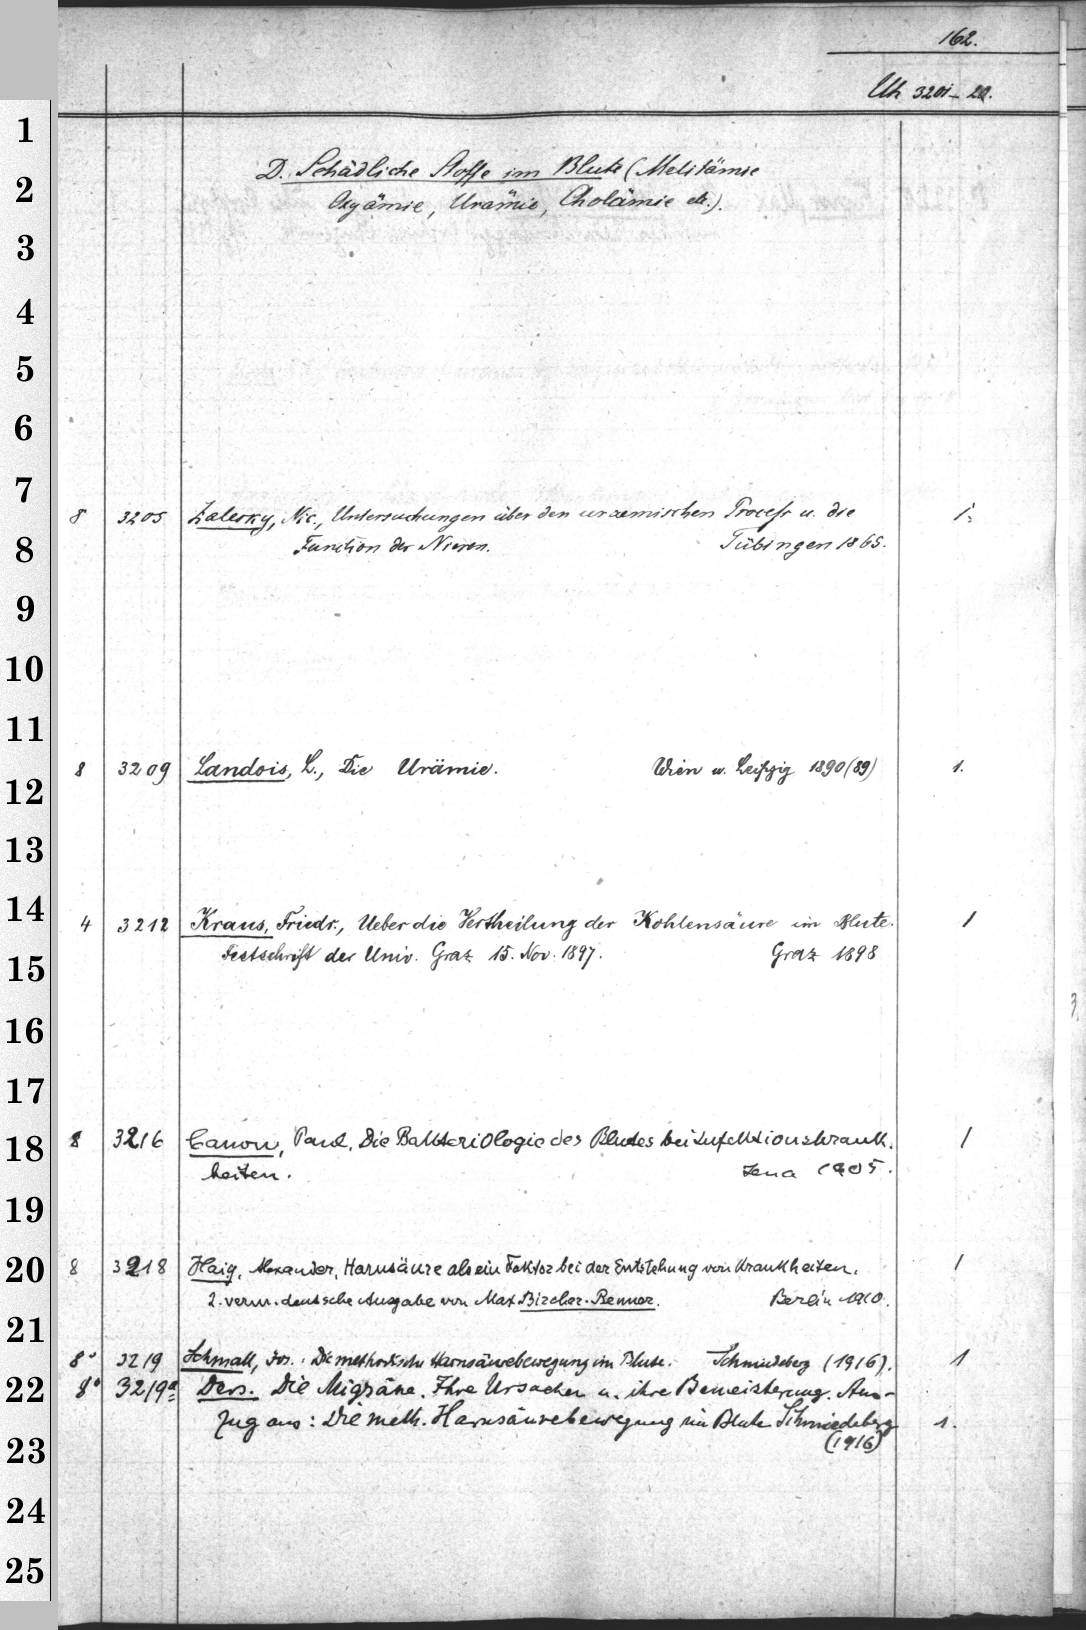 162.
Uh 3201-20.
D. Schädliche Stoffe im Blute (Melitämie
Oxyämie, Urämie, Cholämie etc.).
8 3205 Zalesky, Nic., Untersuchungen über den uraemischen Process u. die 1.
Function der Nieren. Tübingen 1865.
8 3209 Landois, L., Die Urämie. Wien u. Leipzig 1890(89) 1.
4 3212 Kraus, Friedr., Ueber die Vertheilung der Kohlensäure im Blute. 1
Festschrift der Univ. Graz 15. Nov. 1897. Graz 1898
8 3216 Canon, Paul, Die Bakteriologie des Blutes bei Infektionskrank 1
heiten. Jena 1905.
8 3218 Haig, Alexander, Harnsäure als ein Faktor bei der Entstehung von Krankheiten. 1
2. verm. deutsche Ausgabe von Max Bircher-Benner. Berlin 1910.
8° 3219 Schmall, Jos.: Die methodische Harnsäurebewegung im Blute. Schmiedeberg (1916). 1
8° 3219a Ders. Die Migräne. Ihre Ursachen u. ihre Bemeisterung. Aus-
zug aus: Die meth. Harnsäurebewegung im Blute Schmiedeberg 1.
(1916)
1
2
3
4
5
6
7
8
9
10
11
12
13
14
15
16
17
18
19
20
21
22
23
24
25